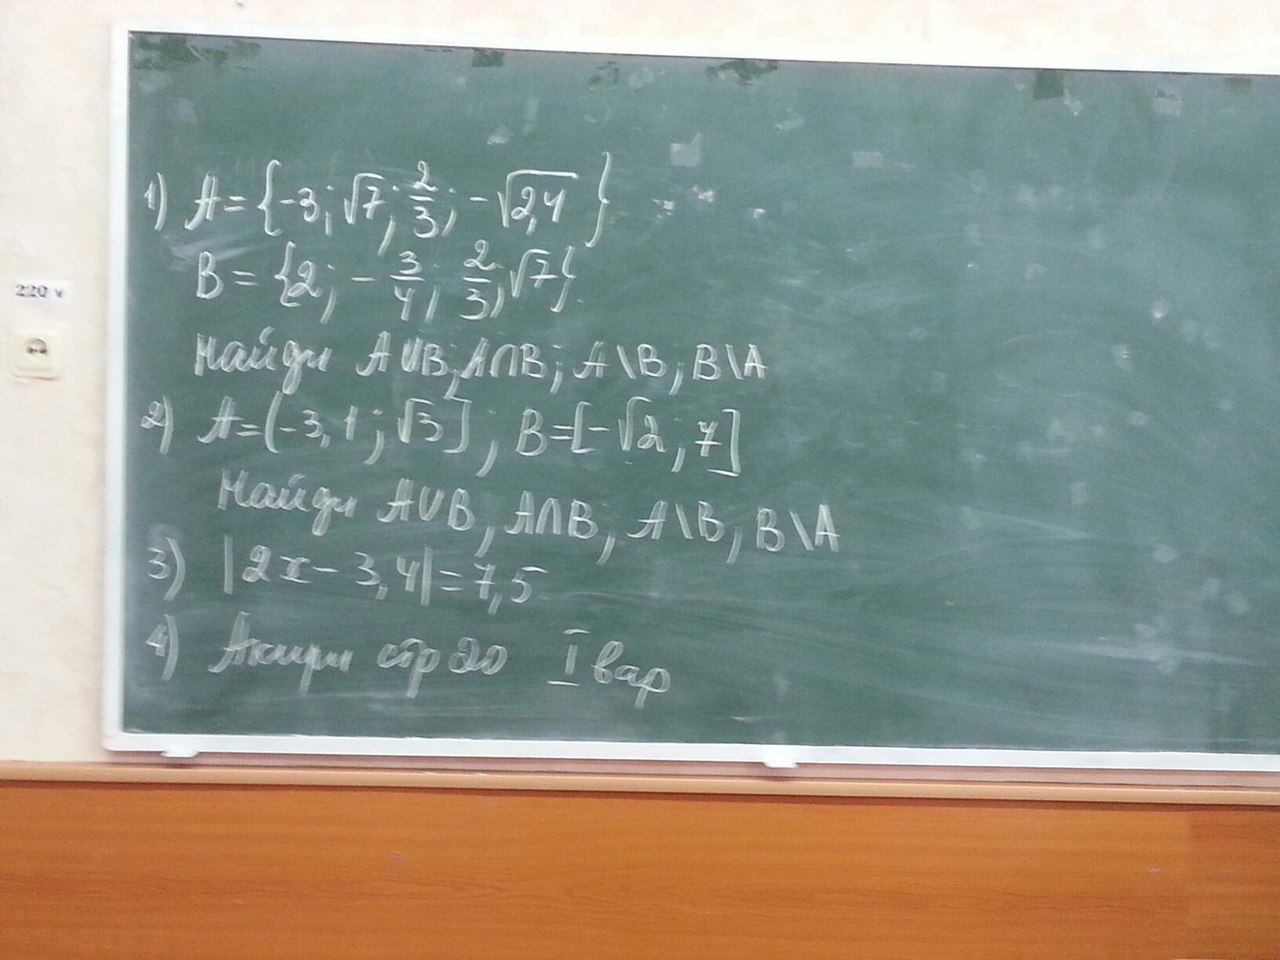 220 v
1) A = {-3; √7; 2/3; -√2,4}
B = {2; -3/4; 2/3; √7}
Найди A∪B; A∩B; A\B; B\A
2) A=(-3,1; √3], B=[-√2; 7]
Найди A∪B, A∩B, A\B, B\A
3) |2x - 3,4| = 7,5
4) стр 20 I вар